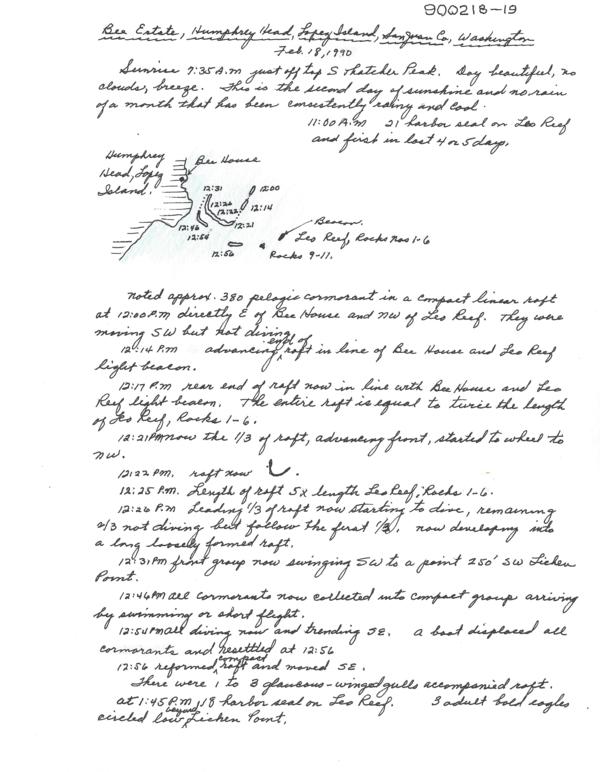 900218-19
Bee Estate, Humphrey Head, Lopez Island, San Juan Co, Washington
Feb. 18, 1990
Sunrise 7:35 A.m just off top S Thatcher Peak. Day beautiful, no
clouds, breeze. This is the second day of sunshine and no rain
of a month that has been consistently rainy and cool.
11:00 A.M 21 harbor seal on Leo Reef
and first in last 4 or 5 days.
Humphrey
Head, Lopez
Island.
Bee House
12:31
12:00
12:26
12:22
12:14
12:21
12:46
12:54
12:56
Beacon
Leo Reef, Rocks Nos 1-6
Rocks 9-11.
Noted approx. 380 pelagic cormorant in a compact linear raft
at 12:00 P.M directly E of Bee House and NW of Leo Reef. They were
moving SW but not diving.
12:14 P.M advancing end of raft in line of Bee House and Leo Reef
light beacon.
12:17 P.m rear end of raft now in line with Bee House and Leo
Reef light beacon. The entire raft is equal to twice the length
of Leo Reef, Rocks 1-6.
12:21 PM now the 1/3 of raft, advancing front, started to wheel to
NW.
12:22 PM. raft now
12:25 P.M. Length of raft 5X length Leo Reef, Rocks 1-6.
12:26 P.M Leading 1/3 of raft now starting to dive, remaining
2/3 not diving but follow the first 1/3. now developing into
a long loosely formed raft.
12:31 PM front group now swinging SW to a point 250' SW Lichen
Point.
12:46 PM all cormorants now collected into compact group arriving
by swimming or short flight.
12:54 PM all diving now and trending SE. a boat displaced all
cormorants and resettled at 12:56
12:56 reformed compact raft and moved SE.
There were 1 to 3 glaucous-winged gulls accompanied raft.
at 1:45 P.M, 18 harbor seal on Leo Reef. 3 adult bald eagles
circled low beyond Lichen Point.